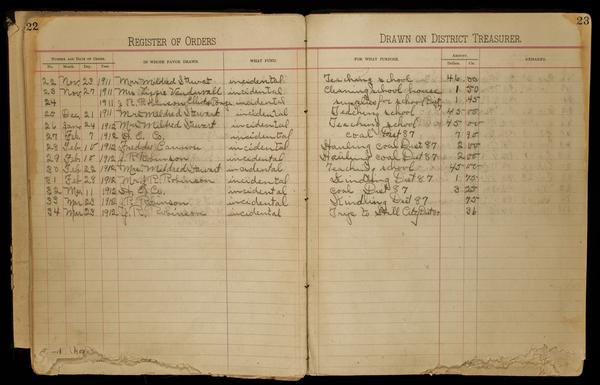 22
REGISTER OF ORDERS
NUMBER AND DATE OF ORDER. IN WHOSE FAVOR DRAWN. WHAT FUND.
No. Month. Day. Year.
22 Nov 23 1911 Mrs Mildred Stuvart incidental
23 Nov 27 1911 Mrs Lizzie incidental
24 1911 incidental
25 Dec 21 1911 Mrs Mildred Stuvart incidental
26 Jan 24 1912 Mrs Mildred Stuvart incidental
27 Feb 7 1912 Co. incidental
28 Feb 10 1912 Freddie Cannon incidental
29 Feb 10 1912 J. R. Robinson incidental
30 Feb 22 1912 Mrs Mildred Stuvart incidental
31 Feb 28 1912 Mrs J. R. Robinson incidental
32 Mar 11 1912 Co. incidental
33 Mar 23 1912 J. R. Robinson incidental
34 Mar 23 1912 J. R. Robinson incidental
23
DRAWN ON DISTRICT TREASURER.
FOR WHAT PURPOSE. AMOUNT. REMARKS.
Dollars. Cts.
Teaching school 46.00
Cleaning school house 1 50
supplies for school Dist 1 45
Teaching school 45 00
Teaching school 45 00
coal Dist 87 7 90
Hauling coal Dist 87 2 00
Hauling coal Dist 87 2 00
Teaching school 45 00
Kindling Dist 87 1 75
coal Dist 87 3 25
Kindling Dist 87 75
Trips to Still City Dist 87 36